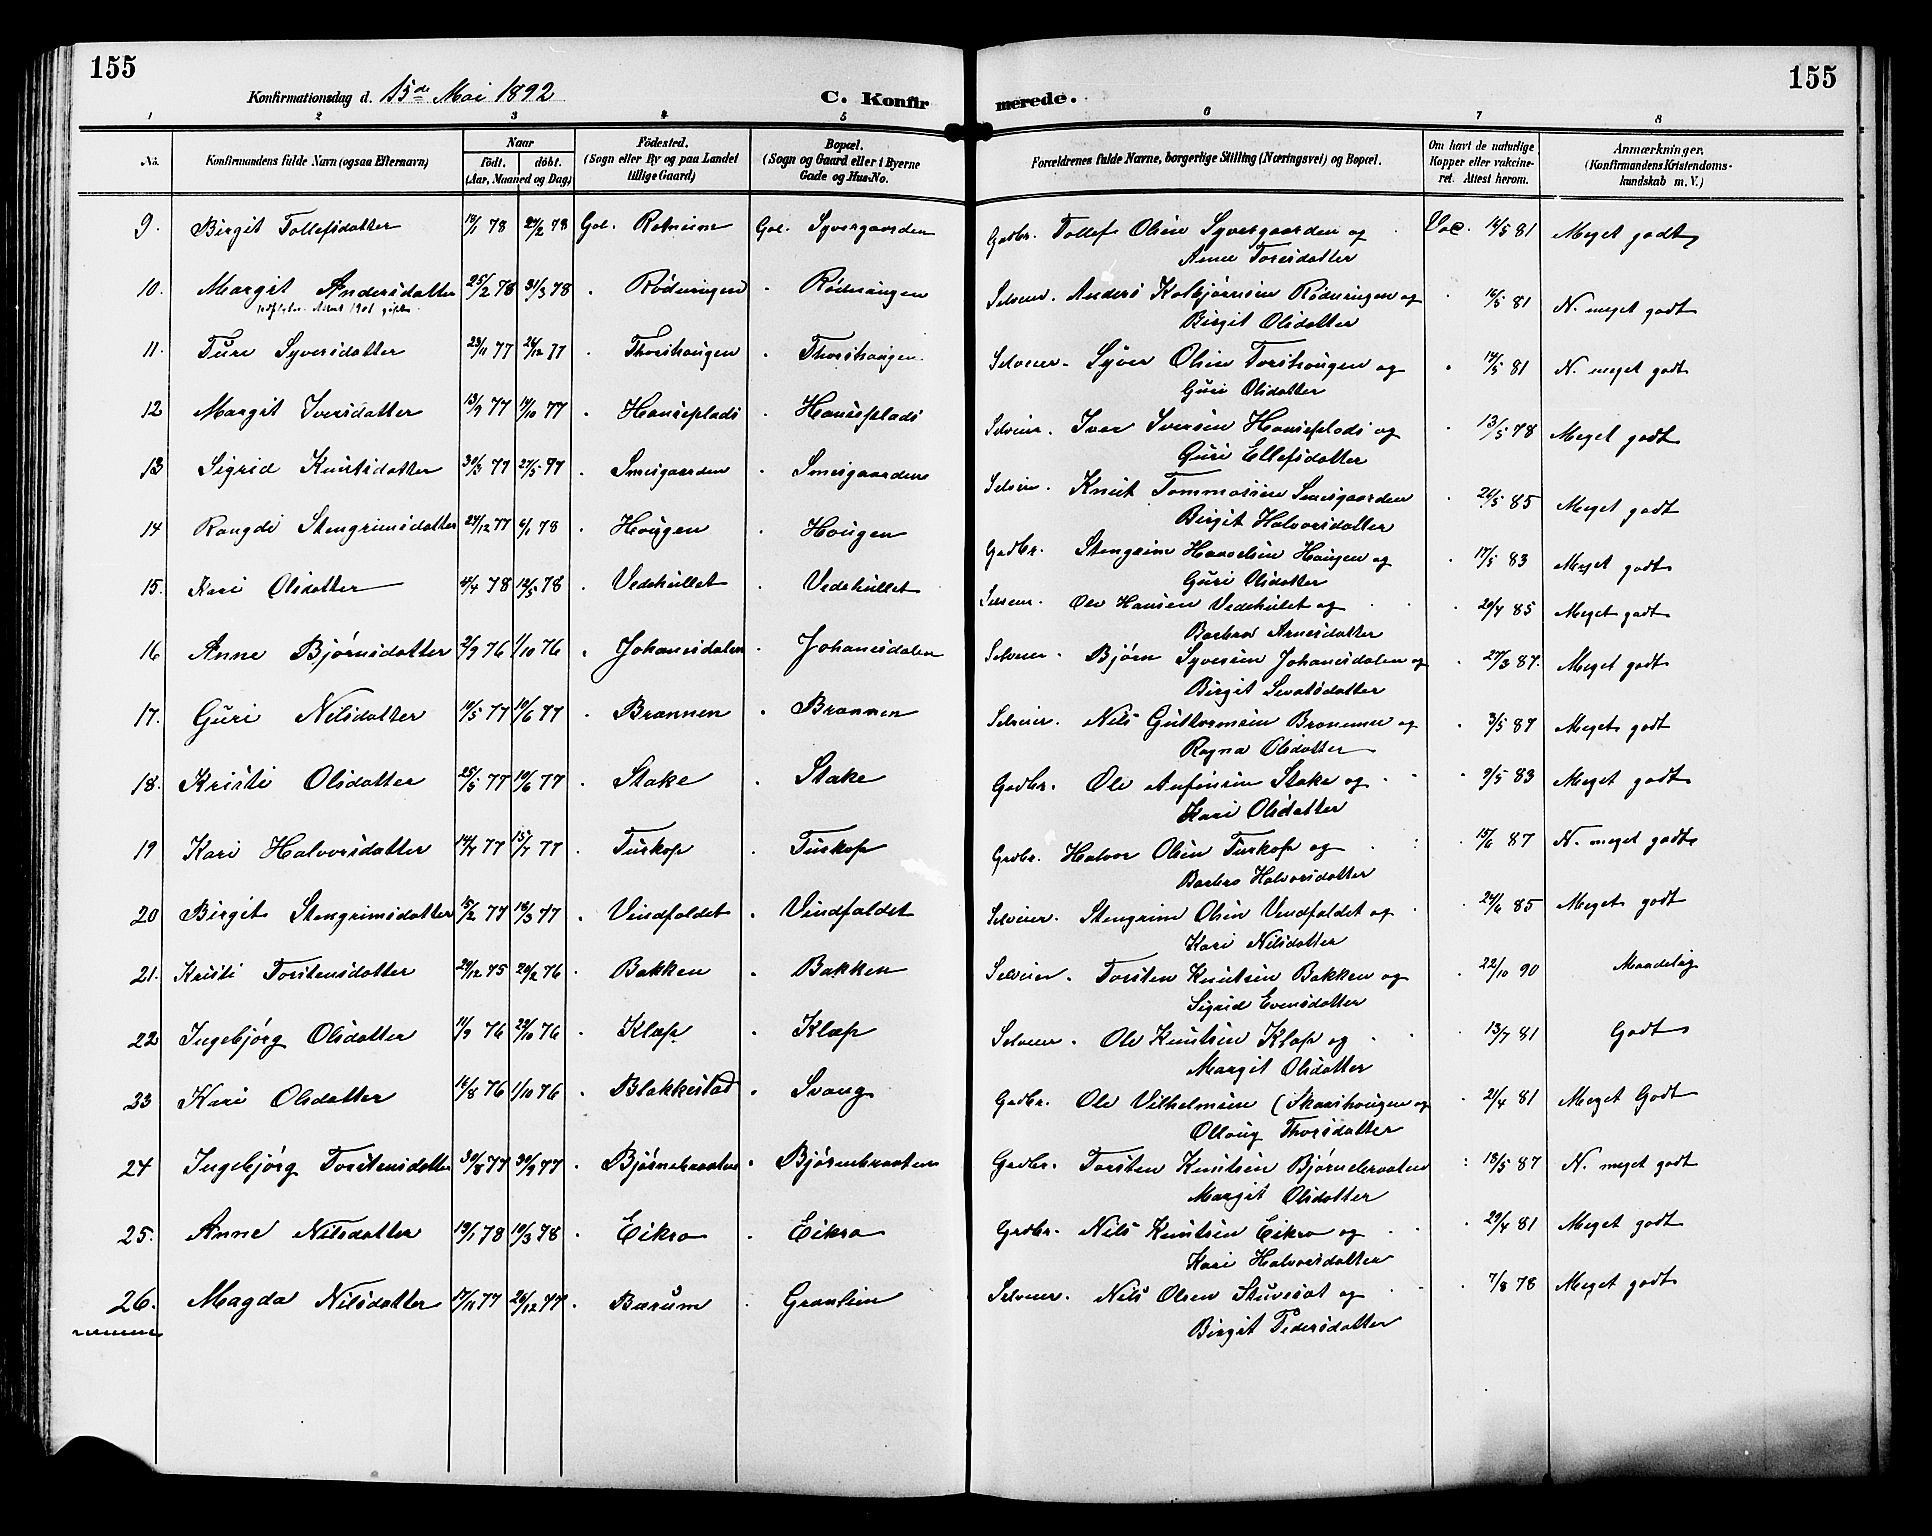 155
155
Konfirmationsdag d. 15de Mai 1892
C. Konfir
merede.
1 2 3 4 5 6 7 8
No. Konfirmandens fulde Navn (ogsaa Efternavn)
Naar
födt. döbt.
(Aar, Maaned og Dag)
Födested.
(Sogn eller By og paa Landet
tillige Gaard)
Bopæl.
(Sogn og Gaard eller i Byerne
Gade og Hus-No.
Forældrenes fulde Navne, borgerlige Stilling (Næringsvei) og Bopæl.
Om havt de naturlige
Kopper eller vakcine-
ret. Attest herom.
Anmærkninger,
(Konfirmandens Kristendoms-
kundskab m. V.)
9. Birgit Tollefsdatter 78 78 Gol. Rotneim Gol. Syvergaarden Gadbr. Tollef Olsen Syvergaarden og Vac. 14/5 81 Meget godt
Anne Toresdatter
10. Margit Andersdatter 25/2 78 31/3 78 Rødningen Rødningen Selveier. Anders Kolbjørnsen Rødningen og 16/5 81 N. meget godt
Birgit Olsdatter
11. Turi Syversdatter 23/11 77 26/12 77 Thorshougen Thorshougen. Selveier. Syver Olsen Torshougen og 14/5 81 N. meget godt
Guri Olsdatter
12 Margit Iversdatter 13/9 77 14/10 77 Hanseplads Hanseplads Selveier. Iver Iversen Hanseplads og 13/5 78 Meget godt
Guri Ellefsdatter
13 Sigrid Knutsdatter 31/3 77 27/5 77 Smisgaarden Smisgaarden Selveier. Knut Tommassen Smisgaarden 26/5 85 Meget godt
Birgit Halvorsdatter
14 Rangdi Stengrimsdatter 24/12 77 6/1 78 Hougen Hougen Gadbr. Stengrim Hougen og 17/5 83 Meget godt
Guri Olsdatter
15. Kari Olsdatter 4/4 78 12/5 78 Vedehullet Vedehullet Selveier. Ole Hansen Vedehulet og 20/4 85 Meget godt
Barbro Arnesdatter
16 Anne Bjørnsdatter 2/9 76 1/10 76 Johanesdalen Johanesdalen Selveier. Bjørn Syversen Johanesdalen og 27/3 87. Meget godt
Birgit
17. Guri Nilsdatter 14/5 77 10/6 77 Brannen Brannen Selveier. Nils Guttormsen Brannen og 3/5 87 Meget godt
Ragna Olsdatter
18. Kristi Olsdatter 25/5 77 10/6 77 Stake Stake Gadbr. Ole Anfinsen Stake og 9/5 83 Meget godt
Kari Olsdatter
19 Kari Halvorsdatter 77 15/7 77 Turkop Turkop Grdbr. Halvor Olsen Turkop og 15/6 87 N. meget godt
Barbro Halvorsdatter
20 Birgit Stengrimsdatter 15/2 77 18/3 77 Vindfaldet Vindfaldet Selveier. Stengrim Olsen Vindfaldet og 24/6 85 Meget godt
Kari Nilsdatter
21. Kristi Torstensdatter 29/12 75 20/2 76 Bakken Bakken Selveier. Torsten Knutsen Bakken og 22/10 90 Maadelig
Sigrid Evensdatter
22 Ingebjørg Olsdatter 11/9 76 29/10 76 Klæp Klæp Selveier. Ole Knutsen Klæp og 13/7 81 Godt
Margit Olsdatter
23 Kari Olsdatter 16/8 76 1/10 76 Blakkestad Svang Gadbr. Ole Vilhelmsen (Skarshougen og 21/4 81 Meget Godt
Ollaug Thorsdatter
24 Ingebjörg Torstensdatter 30/8 77 30/9 77 Bjørnebraaten Bjørnebraaten Gadbr. Torsten Knutsen Bjørnebraaten 18/5 87 N. meget godt
Margit Olsdatter
25. Anne Nilsdatter 19/1 78 10/3 78 Eikro Eikro Grdbr. Nils Knutsen Eikro og 29/4 81 Meget godt
Kari Halvorsdatter
26. Magda Nilsdatter 17/11 77 26/12 77 Bærum Grønlien Selveier. Nils Olsen og 7/8 78 Meget godt
Birgit Pedersdatter